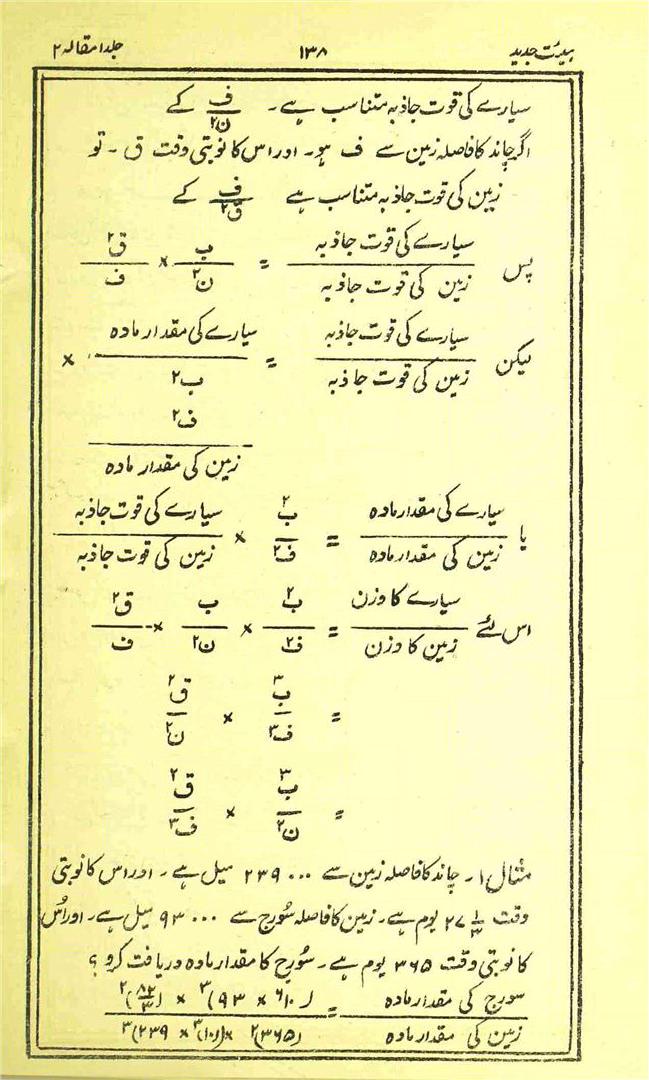 ہیئت جدید ۱۳۸ جلد ۱ مقالہ ۲
سیارے کی قوت جاذبہ متناسب ہے۔ ف/ن۲ کے
اگر چاند کا فاصلہ زمین سے ف ہو۔ اور اس کا نوبتی وقت ق ۔ تو
زمین کی قوت جاذبہ متناسب ہے ف/ق۲ کے
پس سیارے کی قوت جاذبہ/زمین کی قوت جاذبہ = ب/ن۲ × ق۲/ف
لیکن سیارے کی قوت جاذبہ/زمین کی قوت جاذبہ = سیارے کی مقدار مادہ/ب۲ ×
ف۲/زمین کی مقدار مادہ
یا سیارے کی مقدار مادہ/زمین کی مقدار مادہ = ب۲/ف۲ × سیارے کی قوت جاذبہ/زمین کی قوت جاذبہ
اس لئے سیارے کا وزن/زمین کا وزن = ب۲/ف۲ × ب/ن۲ × ق۲/ف
= ب۳/ف۳ × ق۲/ن۲
= ب۳/ن۲ × ق۲/ف۳
مثال ۱۔ چاند کا فاصلہ زمین سے ۲۳۹۰۰۰ میل ہے۔ اور اس کا نوبتی
وقت ۲۷ ۱/۳ یوم ہے۔ زمین کا فاصلہ سورج سے ۹۳۰۰۰ میل ہے۔ اور اُس
کا نوبتی وقت ۳۶۵ یوم ہے۔ سورج کا مقدار مادہ دریافت کرو؟
سورج کی مقدار مادہ/زمین کی مقدار مادہ = (۱۰۶ × ۹۳)۳ × (۸۲/۳)۲/(۳۶۵)۲ × (۱۰)۳ × (۲۳۹)۳